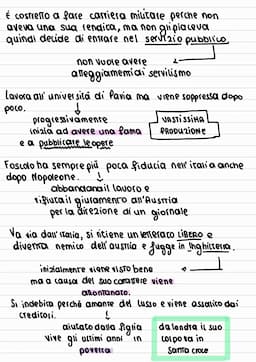 è costretto a fare carriera militare perchè non
aveva una sua rendita, ma non gli piaceva
quindi decide di entrare nel servizio pubblico.
non vuole avere
atteggiamenti di servilismo
lavora all'università di Pavia ma viene soppressa dopo
poco.
progressivamente
inizia ad avere una fama
e a pubblicare le opere
VASTISSIMA
PRODUZIONE
Foscolo ha sempre più poca fiducia nell'italia anche
dopo Napoleone.
abbandona il lavoro e
rifiuta il giuramento all'Austria
per la direzione di un giornale
Va via dall'italia, si ritiene un letterato LIBERO e
diventa nemico dell'austria e fugge in Inghilterra.
inizialmente viene visto bene
ma a causa del suo carattere viene
allontanato.
Si indebita perchè amante del lusso e viene assalito dai
creditori.
aiutato dalla figlia
vive gli ultimi anni in
povertà
da londra il suo
corpo va in
Santa croce